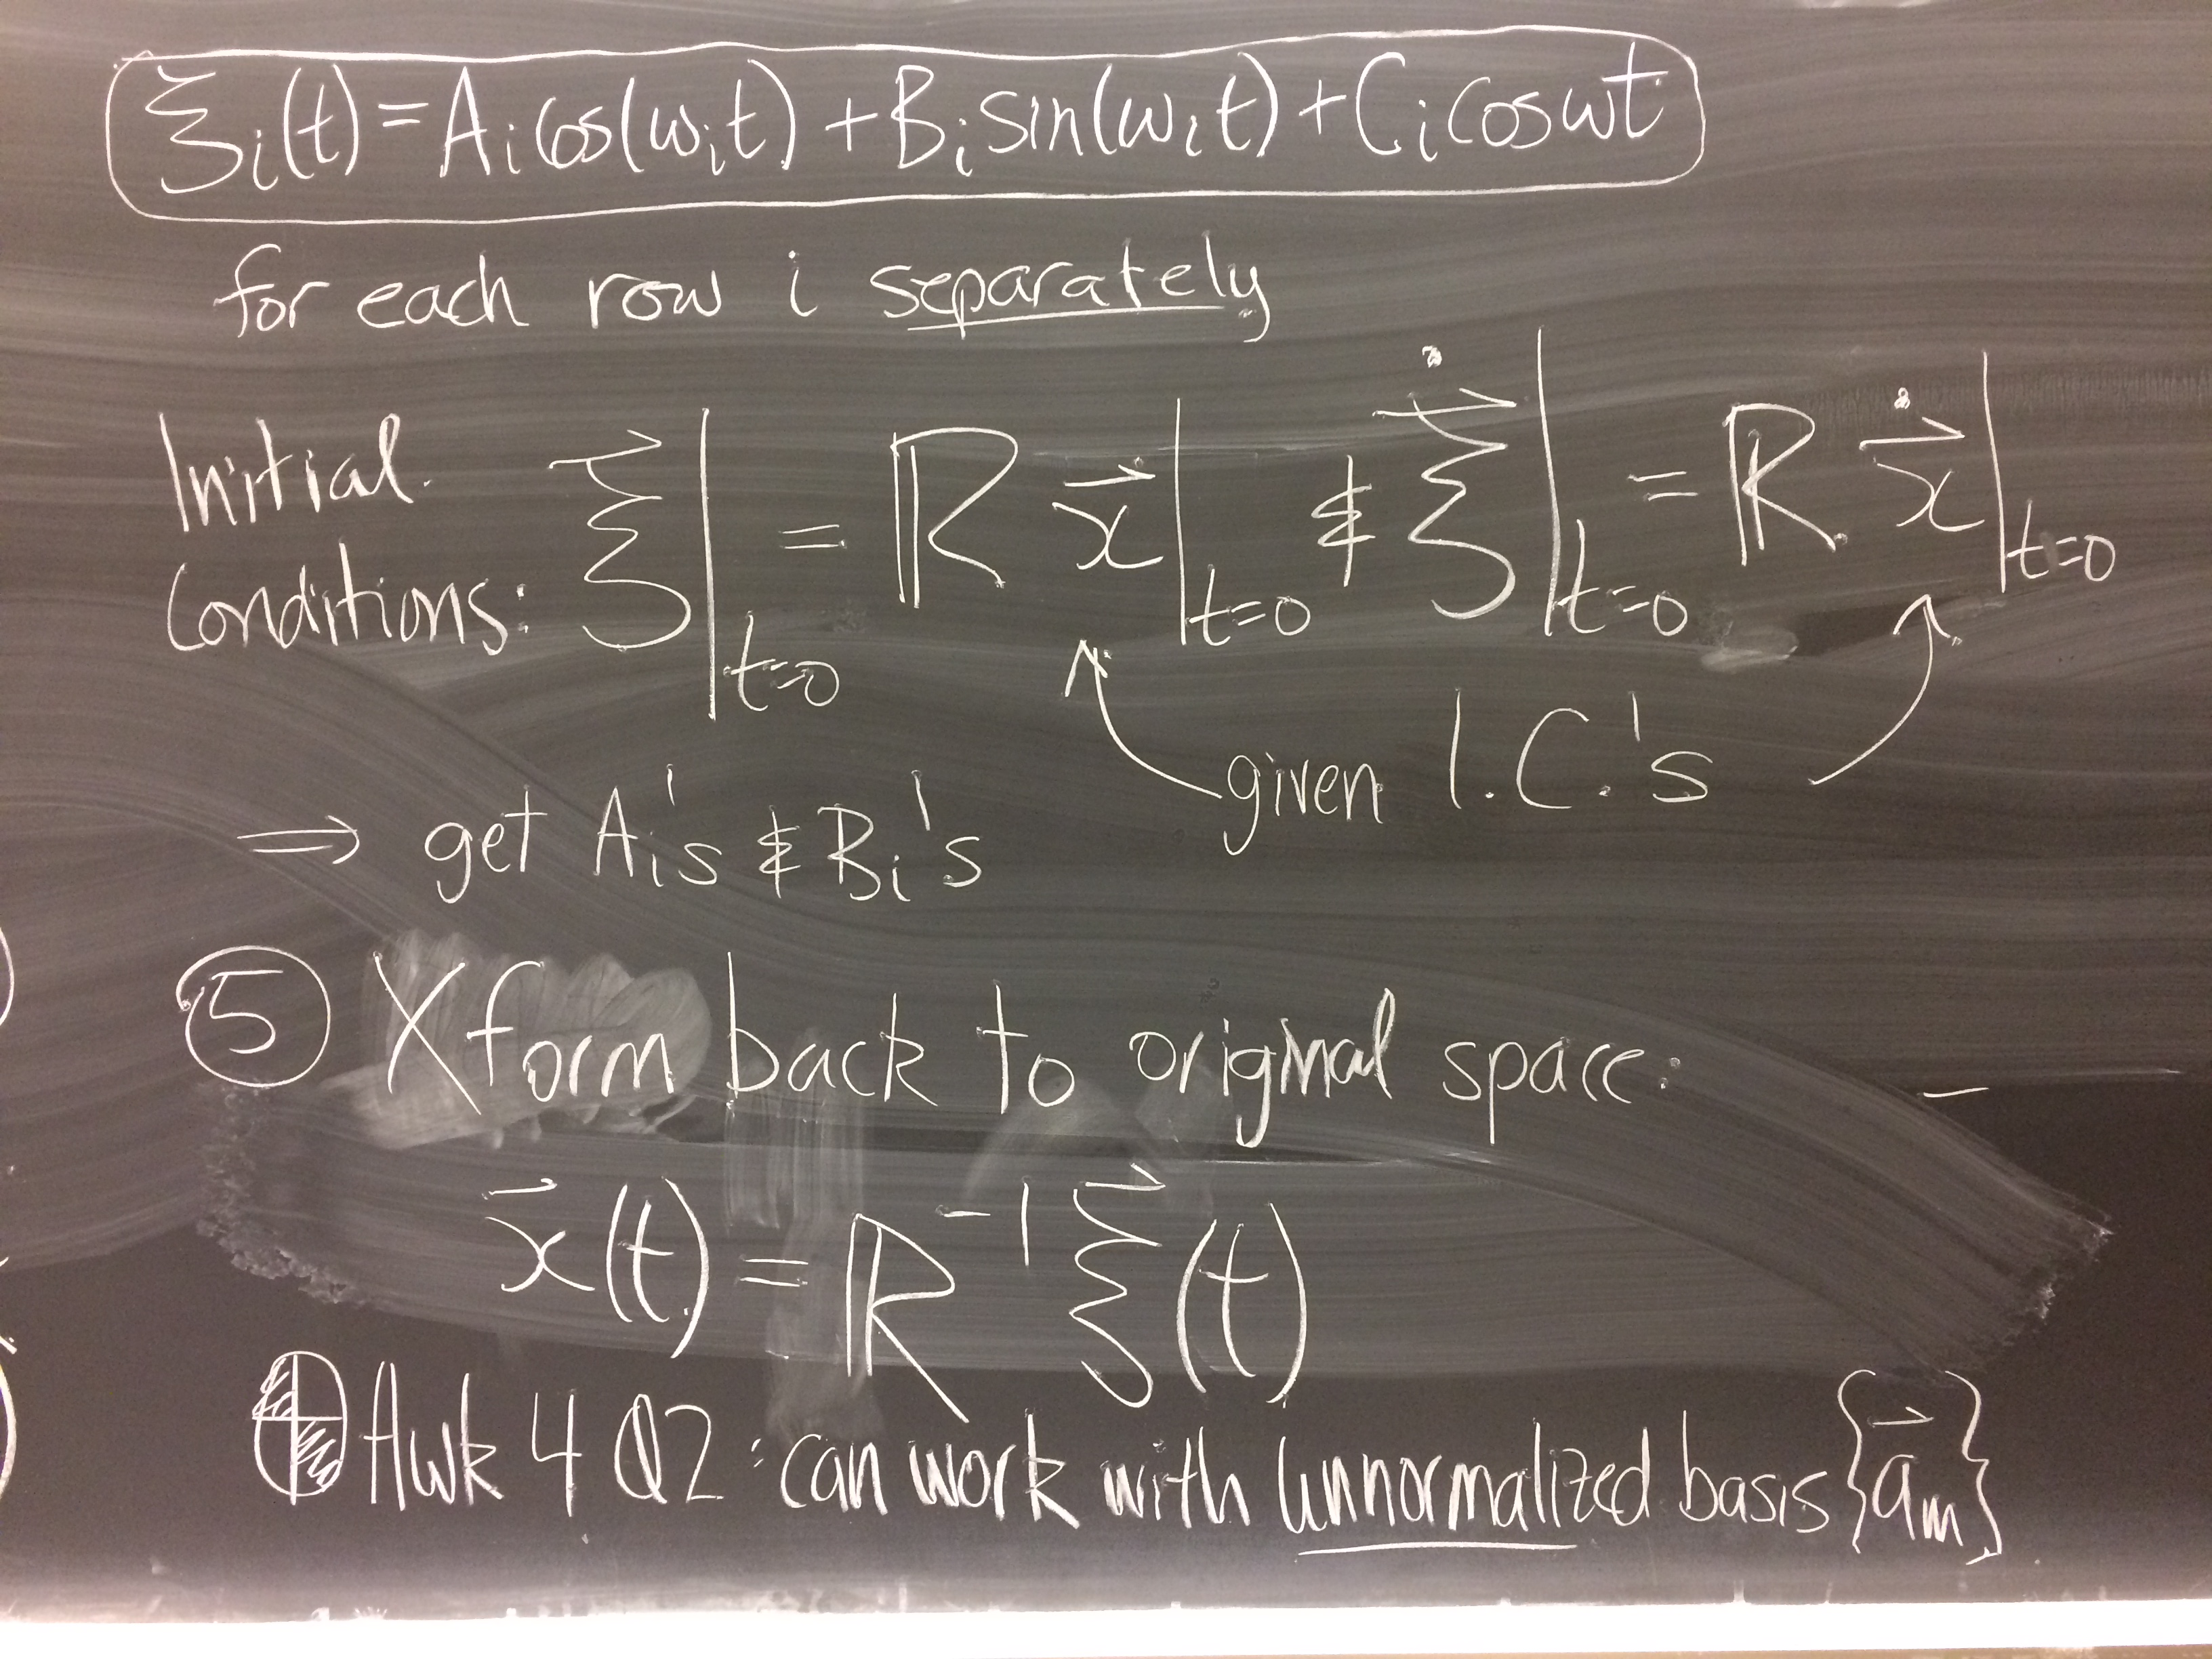 ξᵢ(t) = Aᵢ cos(ωᵢt) + Bᵢ sin(ωᵢt) + Cᵢ cos ωt
for each row i separately
Initial Conditions: ξ⃗|ₜ₌₀ = ℝ x⃗|ₜ₌₀ & ξ⃗̇|ₜ₌₀ = ℝ x⃗̇|ₜ₌₀
given I.C.'s
⇒ get Aᵢ's & Bᵢ's
⑤ Xform back to original space:
x⃗(t) = ℝ⁻¹ ξ⃗(t)
Hwk 4 Q2: can work with unnormalized basis {a⃗ₘ}